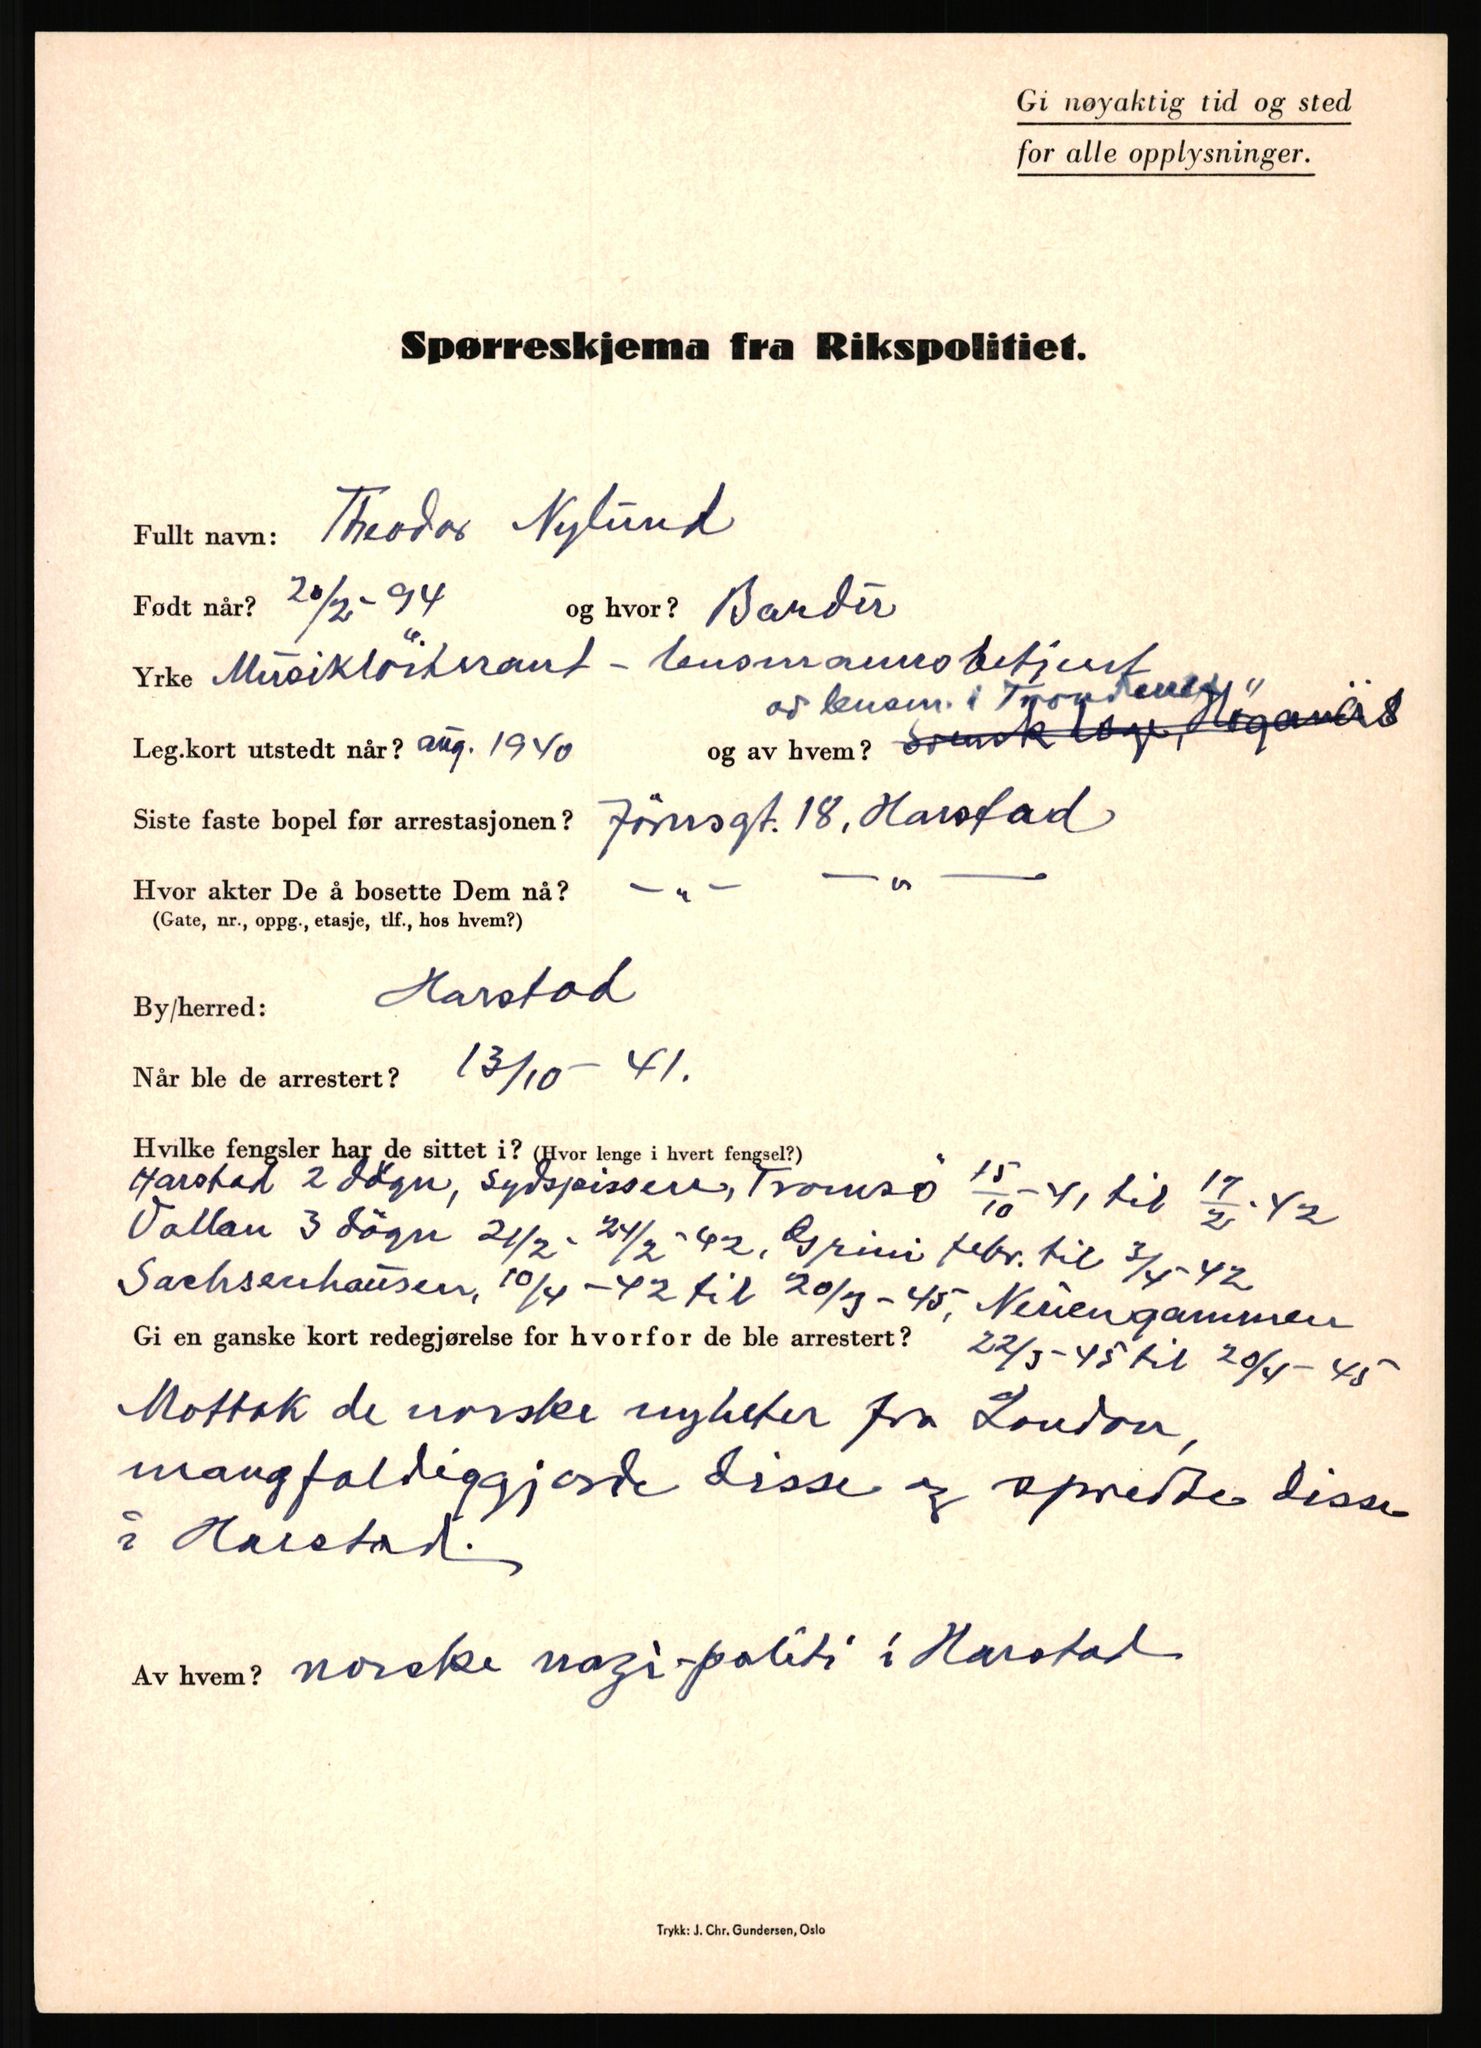 Gi nøyaktig tid og sted
for alle opplysninger.
Spørreskjema fra Rikspolitiet.
Fullt navn: Theodor Nylund
Født når? 20/2 - 94 og hvor? Bardu
Yrke Musiklöitnant - lensmannsbetjent
av lensm. i Trondenes
Leg.kort utstedt når? aug. 1940 og av hvem? Svensk lege, Höganäs
Siste faste bopel før arrestasjonen? 18, Harstad
Hvor akter De å bosette Dem nå? - " - - " -
(Gate, nr., oppg., etasje, tlf., hos hvem?)
By/herred: Harstad
Når ble de arrestert? 13/10 - 41.
Hvilke fengsler har de sittet i? (Hvor lenge i hvert fengsel?)
Harstad 2 døgn, Sydspissen, Tromsö 15/10 - 41 til 17/2 - 42
Vollan 3 dögn 21/2 - 24/2 - 42, Grini febr. til 3/4 - 42
Sachsenhausen, 10/4 - 42 til 20/3 - 45, Neuengammen
Gi en ganske kort redegjørelse for hvorfor de ble arrestert? 22/3 - 45 til 20/4 - 45
Mottok de norske nyheter fra London,
mangfoldiggjorde disse og spredte disse
i Harstad.
Av hvem? norske nazi-politi i Harstad
Trykk: J. Chr. Gundersen, Oslo